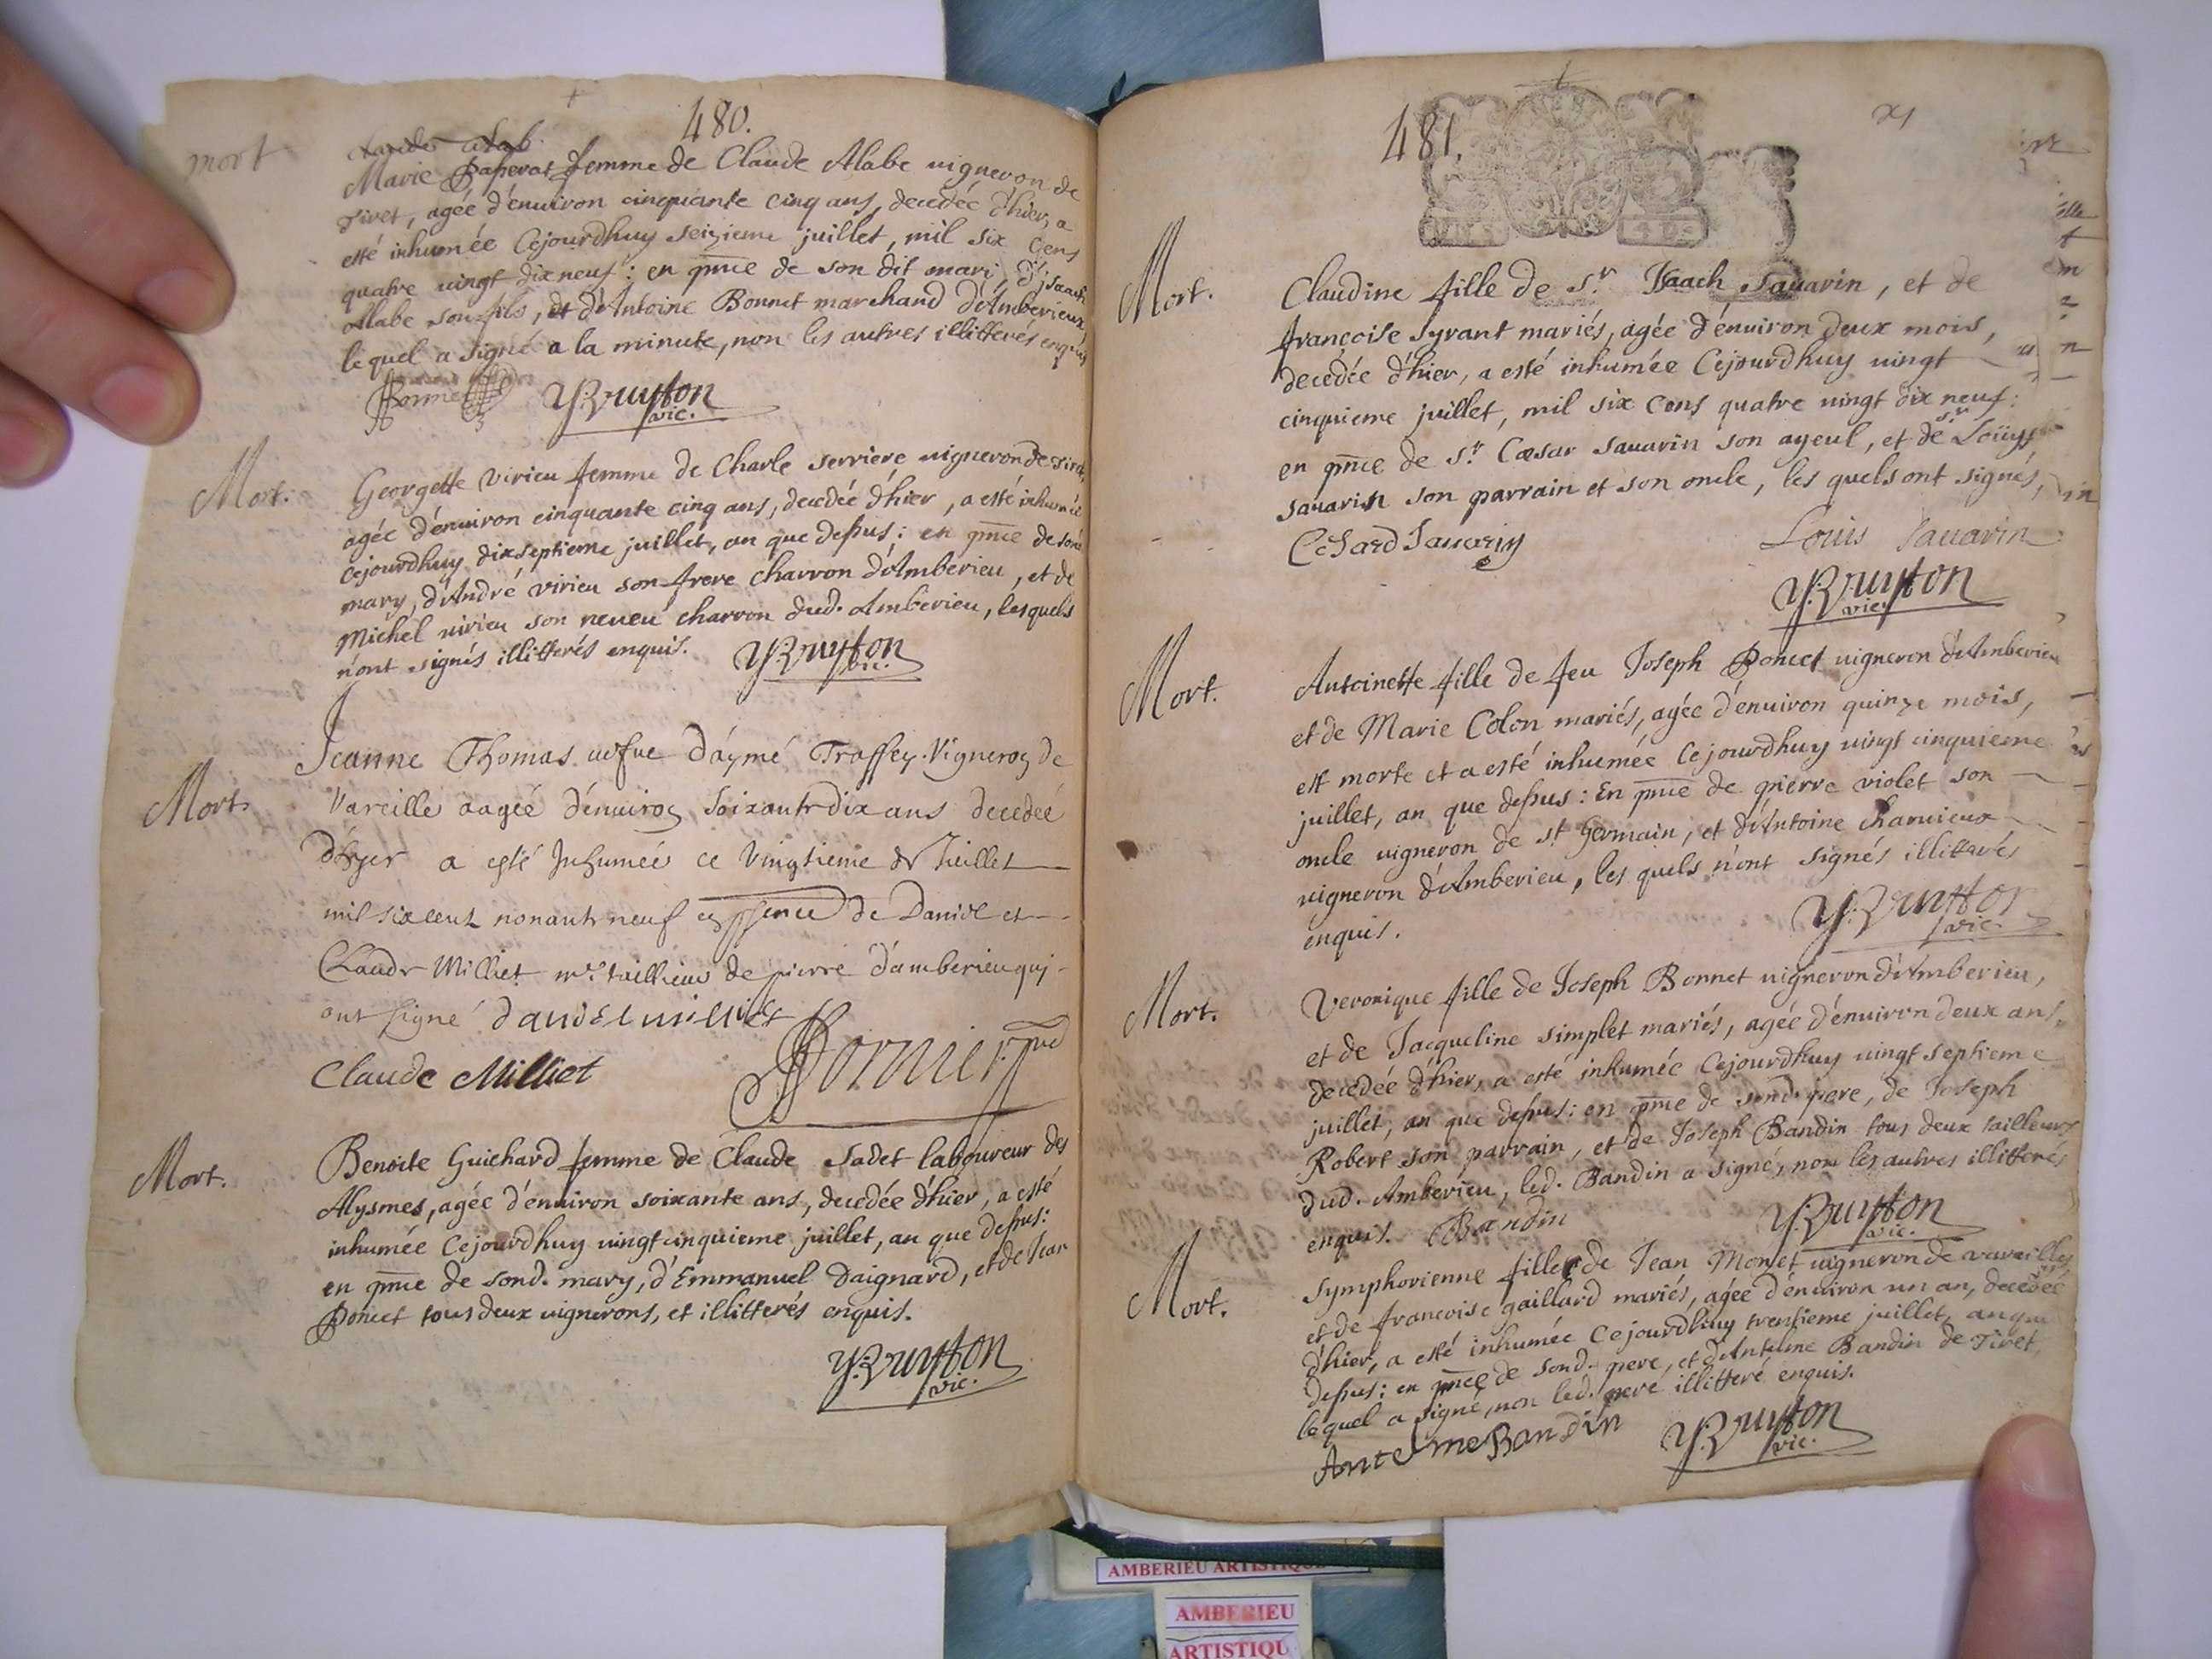 480.
mort
Marie Paperat femme de Claude Alabe uigneron de
Tiret, agée d'énuiron cinquante cinq ans, decedée d'hier, a
esté inhumée Cejourdhuy seizieme juillet, mil six Cens
quatre uingt dix neuf: en pnce de son dit mari, d'jsaach
Alabe son fils, et d'Antoine Bonnet marchand d'Amberieux,
lequel a signé a la minute, non les autres illitterés enquis
Bonnet Y.Bruyston
vic.
Mort.
Georgette Virieu femme de Charle serriere uigneron de Tiret,
agée d'énuiron cinquante cinq ans, decedée d'hier, a esté inhumée
cejourdhuy dixseptieme juillet, an que dessus: en pnce de sond.
mary, d'André virieu son frere charron d'Amberieu, et de
Michel uirieu son neueu charron dud. Amberieu, lesquels
n'ont signés illitterés enquis. Y.Bruyston
vic.
Mort.
Jeanne Thomas uefue d'aymé Traffey Vigneron de
Vareille aageé dénuiron soixante dix ans decedeé
d'hyer a esté Inhumeé ce Vingtieme de Juillet
mil six cent nonante neuf en psence de Daniel et
Claude Milliet mes tailleur de pierre d'amberieu qui
ont signé daniel milliet
Claude Milliet
Mort.
Benoite Guichard femme de Claude Sadet laboureur des
Alysmes, agée d'énuiron soixante ans, decedée d'hier, a esté
inhumée Cejourdhuy uingt cinquieme juillet, an que dessus:
en pnce de sond. mary, d'Emmanuel Daignard, et de Jean
Poncet tous deux uignerons, et illitterés enquis.
Y.Bruyston
vic.
481.
Mort.
Claudine fille de Sr. Isaach Sauarin, et de
françoise Syrant mariés, agée d'énuiron deux mois,
decedée d'hier, a esté inhumée Cejourdhuy uingt
cinquieme juillet, mil six Cens quatre uingt dix neuf:
en pnce de Sr. Cæsar Sauarin son ayeul, et de Sr Loüys
sauarin son parrain et son oncle, les quels ont signés,
Cesard Sauarin Louis Sauarin
Y.Bruyston
vic.
Mort.
Antoinette fille de feu Joseph Poncet uigneron d'Amberieu
et de Marie Colon mariés, agée d'énuiron quinze mois,
est morte et a esté inhumée Cejourdhuy uingt cinquieme
juillet, an que dessus: En pnce de pierre violet son
oncle uigneron de st Germain, et d'Antoine Charuieux
uigneron d'Amberieu, les quels n'ont signés illitterés
enquis. Y.Bruyston
vic.
Mort.
Veronique fille de Joseph Bonnet uigneron d'Amberieu,
et de Jacqueline simplet mariés, agée d'énuiron deux ans,
decedée d'hier, a esté inhumée Cejourdhuy uingt septieme
juillet, an que dessus: en pnce de sond. pere, de Joseph
Robert son parrain, et de Joseph Bandin tous deux tailleurs
dud. Amberieu, led. Bandin a signé, non les autres illitterés
enquis. Bandin Y.Bruyston
vic.
Mort.
Symphorienne fille de Jean Monet uigneron de vareilles
et de francoise gaillard mariés, agée d'énuiron un an, decedée
d'hier, a esté inhumée Cejourdhuy trentieme juillet, an que
dessus: en pnce de sond. pere, et d'Antelme Bandin de Tiret,
lequel a signé, non led. pere illitteré enquis.
Antelme Bandin Y.Bruyston
vic.
AMBERIEU ARTISTIQUE
AMBERIEU
ARTISTIQU